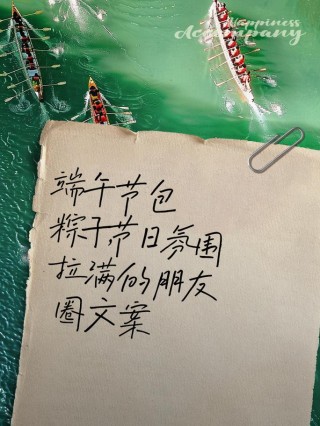 Happiness
Accompany
端午节包
粽子,节日氛围
拉满的朋友
圈文案